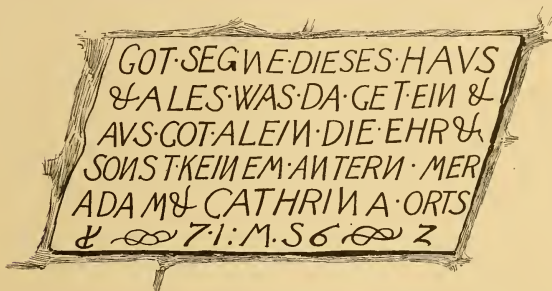 GOT·SEGNE·DIESES·HAVS
&ALES·WAS·DA·GET·EIN &
AVS·GOT·ALEIN·DIE·EHR &
SONST·KEINEM·ANTERN·MER
ADAM& CATHRINA·ORTS
& 7·1:M.S6· 2